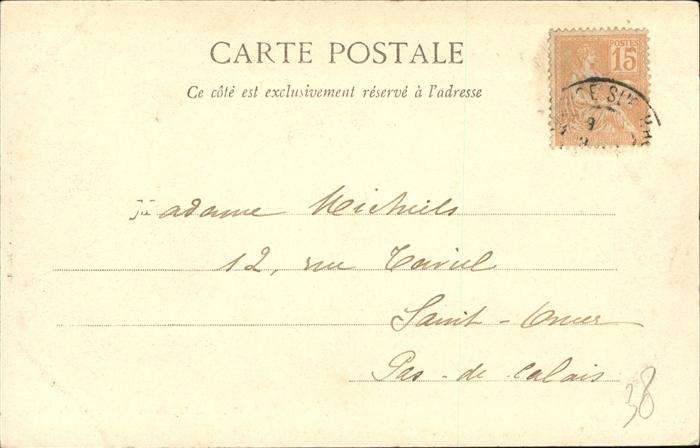 CARTE POSTALE
Ce côté est exclusivement réservé à l'adresse
POSTES
15
Madame Michiels
12, rue Taviel
Saint-Omer
Pas-de Calais
38